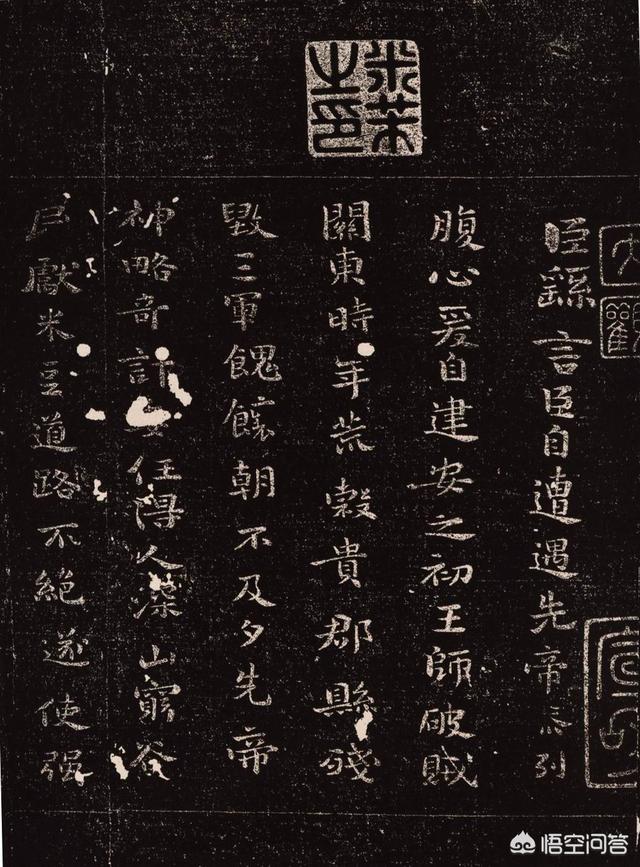 米芾之印
臣繇言臣自遭遇先帝忝列
腹心爰自建安之初王師破賊
關東時年荒穀貴郡縣殘
毀三軍餽饟朝不及夕先帝
神略奇計委任得人深山窮谷
民獻米豆道路不絕遂使强
悟空问答